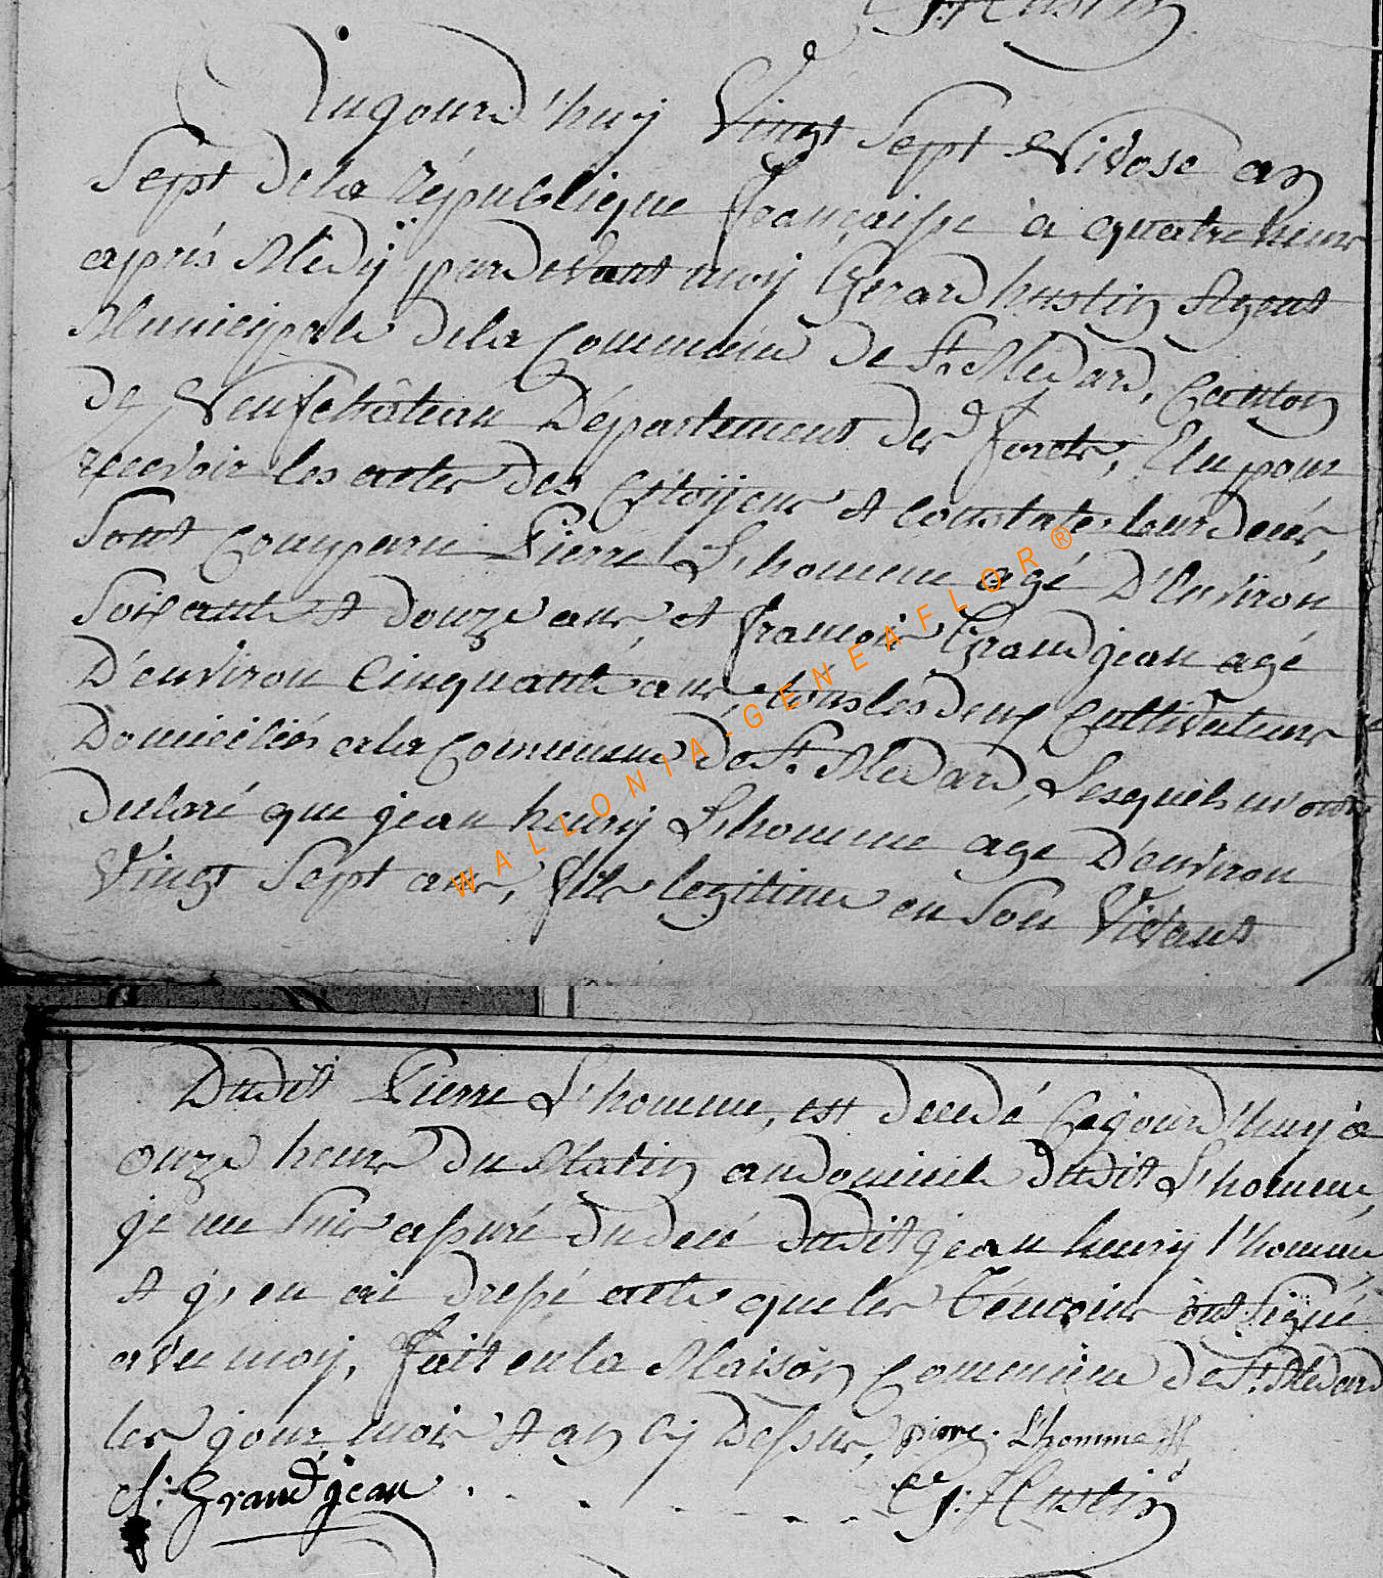 G: Hustin
Aujourd'huy Vingt Sept Nivose an
Sept de la République française à quatre heure
après Medÿ pardevant moy Gerard hustin Agent
Municipale de la Commune de St. Medard, Canton
de Neufchâteau Département des forets, Elu pour
recevoir les actes des Citoÿens et constater leur decés,
sont comparu Pierre L'homme agé D'Environ
soixante et douze ans, et francois Grandjean agé
D'environ Cinquante ans, tous les deux Cultivateurs
Domiciliés a la Commune de St. Medard, Lesquels m'ont
declaré que jean henry L'homme age D'environ
Vingt Sept ans, fils legitime en son Vivant
WALLONIA-GENEAFLOR®
Dudit Pierre L'homme, est decedé Cejourd'huy à
onze heure du Matin au domicile dudit L'homme,
je me suis assuré du decé dudit jean henry l'homme
et j'en ai dressé acte que les Témoins ont signé
avec moy, fait en la Maison Commune de St. Medard
les jour, mois et an cy Dessus, pierre L'homme
f: Grandjean G: Hustin